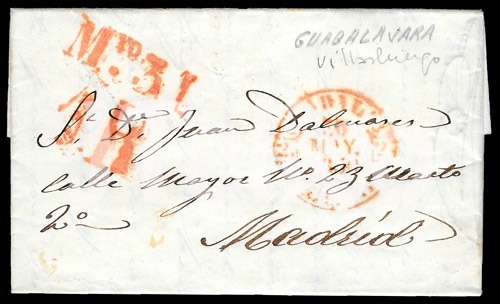 GUADALAJARA
Mrd. 31
1 R
MAY.
Sr. Dn. Juan Dalmares
calle Mayor No. 23 cuarto
2º
Madrid